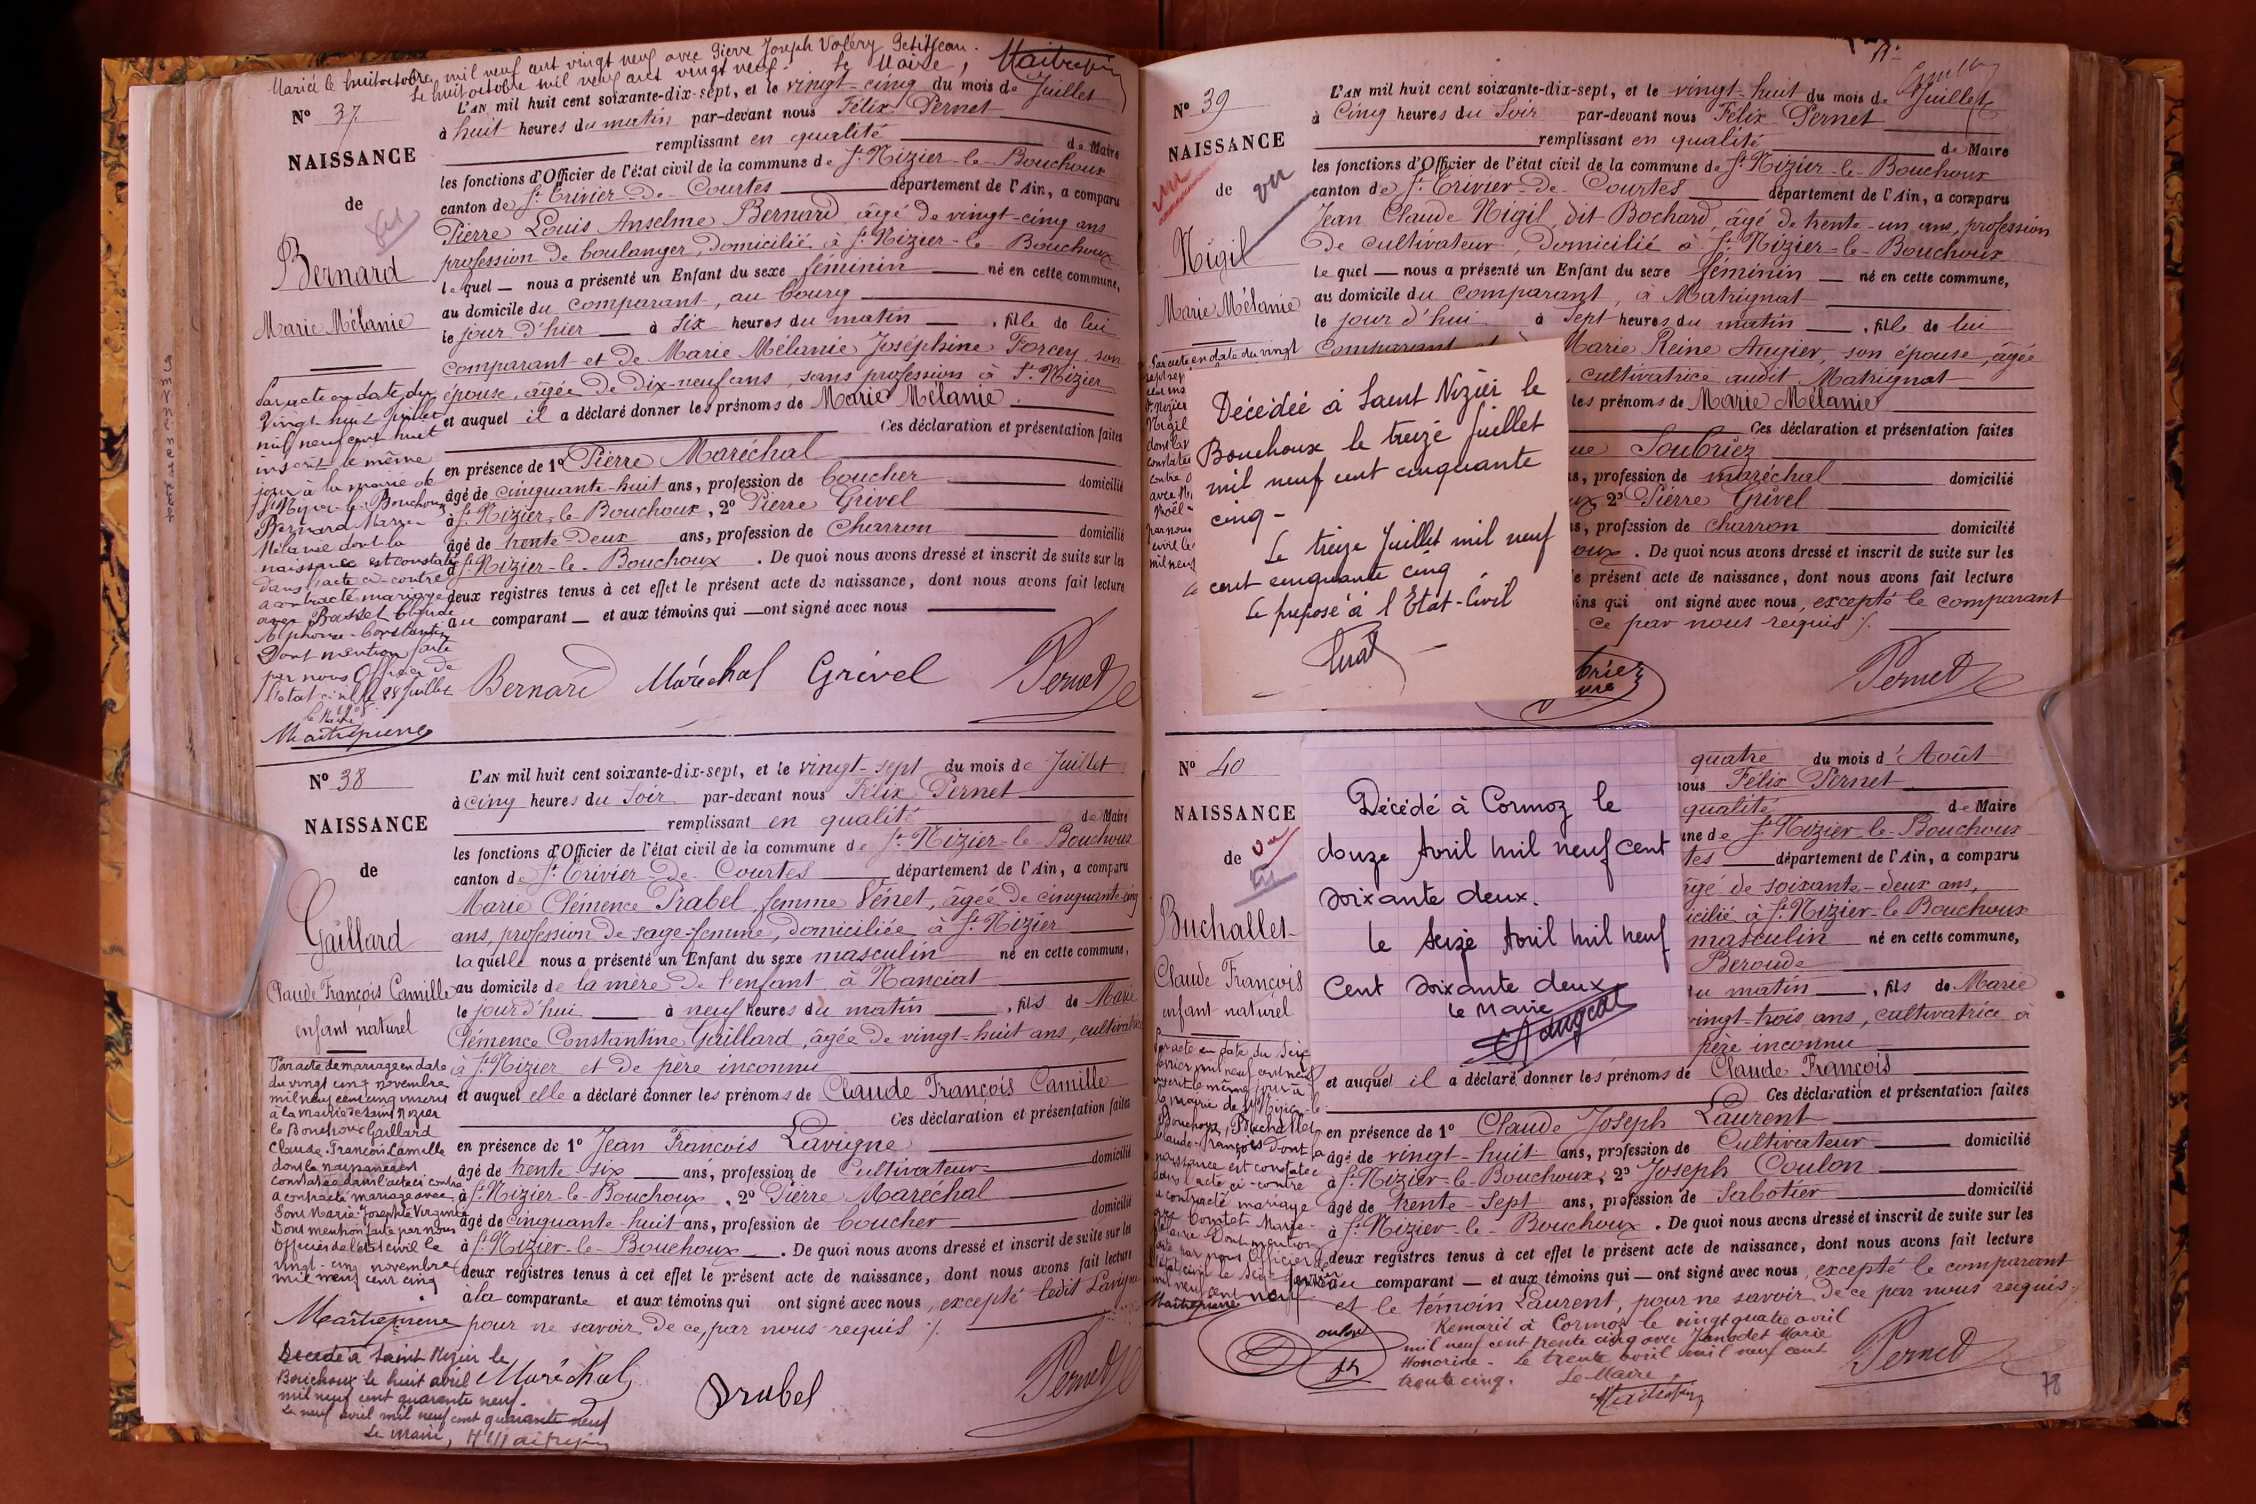 Mariée le huit octobre mil neuf cent vingt neuf avec Pierre Joseph Valéry Petitjean.
Le huit octobre mil neuf cent vingt neuf. Le Maire,
N° 37
NAISSANCE
de
Bernard
Marie Mélanie
L'AN mil huit cent soixante-dix-sept, et le vingt-cinq du mois de Juillet
à huit heures du matin par-devant nous Félix Pernet
remplissant en qualité de Maire
les fonctions d'Officier de l'état civil de la commune de St Nizier-le-Bouchoux
canton de St Trivier-de-Courtes département de l'Ain, a comparu
Pierre Louis Anselme Bernard, âgé de vingt-cinq ans
profession de boulanger, domicilié à St Nizier-le-Bouchoux
lequel nous a présenté un Enfant du sexe féminin né en cette commune,
au domicile du comparant, au bourg
le jour d'hier à six heures du matin, fille de lui
comparant et de Marie Mélanie Joséphine Forcey, son
épouse, âgée de dix-neuf ans, sans profession à St Nizier
et auquel il a déclaré donner les prénoms de Marie Mélanie
Ces déclaration et présentation faites
en présence de 1° Pierre Maréchal
âgé de cinquante-huit ans, profession de boucher domicilié
à St Nizier-le-Bouchoux, 2° Pierre Grivel
âgé de trente-deux ans, profession de charron domicilié
à St Nizier-le-Bouchoux. De quoi nous avons dressé et inscrit de suite sur les
deux registres tenus à cet effet le présent acte de naissance, dont nous avons fait lecture
au comparant et aux témoins qui ont signé avec nous
Bernard Maréchal Grivel Pernet
Par acte en date du
Vingt-huit Juillet
mil neuf cent huit
inscrit le même
jour à la mairie de
St Nizier-le-Bouchoux
Bernard Marie
Mélanie dont la
naissance est constatée
dans l'acte ci-contre
a contracté mariage
avec Basset Claude
Alphonse Constantin
Dont mention faite
par nous Officier de
l'état civil le 28 Juillet
1908
le Maire
Maitrepierre
N° 38
NAISSANCE
de
Gaillard
Claude François Camille
enfant naturel
L'AN mil huit cent soixante-dix-sept, et le vingt-sept du mois de Juillet
à cinq heures du soir par-devant nous Félix Pernet
remplissant en qualité de Maire
les fonctions d'Officier de l'état civil de la commune de St Nizier-le-Bouchoux
canton de St Trivier-de-Courtes département de l'Ain, a comparu
Marie Clémence Prabel, femme Vénet, âgée de cinquante-cinq
ans, profession de sage-femme, domiciliée à St Nizier
laquelle nous a présenté un Enfant du sexe masculin né en cette commune,
au domicile de la mère de l'enfant à Nanciat
le jour d'hui à neuf heures du matin, fils de Marie
Clémence Constantine Gaillard, âgée de vingt-huit ans, cultivatrice
à St Nizier et de père inconnu
et auquel elle a déclaré donner les prénoms de Claude François Camille
Ces déclaration et présentation faites
en présence de 1° Jean François Lavigne
âgé de trente-six ans, profession de Cultivateur domicilié
à St Nizier-le-Bouchoux, 2° Pierre Maréchal
âgé de cinquante-huit ans, profession de boucher domicilié
à St Nizier-le-Bouchoux. De quoi nous avons dressé et inscrit de suite sur les
deux registres tenus à cet effet le présent acte de naissance, dont nous avons fait lecture
à la comparante et aux témoins qui ont signé avec nous, excepté ledit Lavigne
pour ne savoir de ce, par nous requis.
Maréchal Prabel Pernet
Par acte de mariage en date
du vingt cinq novembre
mil neuf cent cinq inscrit
à la mairie de Saint Nizier
le Bouchoux Gaillard
Claude-François Camille
dont la naissance est
constatée dans l'acte ci contre
a contracté mariage avec
Dont mention faite par nous
Officier de l'état civil le
vingt-cinq novembre
mil neuf cent cinq
Maitrepierre
Décédé à Saint Nizier le
Bouchoux le huit avril
mil neuf cent quarante neuf.
Le neuf avril mil neuf cent quarante neuf
Le Maire,
N° 39
NAISSANCE
de
vu
vu
Nigil
Marie Mélanie
L'AN mil huit cent soixante-dix-sept, et le vingt-huit du mois de Juillet
à cinq heures du soir par-devant nous Félix Pernet
remplissant en qualité de Maire
les fonctions d'Officier de l'état civil de la commune de St Nizier-le-Bouchoux
canton de St Trivier-de-Courtes département de l'Ain, a comparu
Jean Claude Nigil, dit Bochard, âgé de trente-un ans, profession
de cultivateur, domicilié à St Nizier-le-Bouchoux
lequel nous a présenté un Enfant du sexe féminin né en cette commune,
au domicile du comparant, à Matrignat
le jour d'hui à sept heures du matin, fille de lui
comparant Marie Reine Augier, son épouse, âgée
, cultivatrice audit Matrignat
les prénoms de Marie Mélanie
Ces déclaration et présentation faites
Soubriez
profession de maréchal domicilié
2° Pierre Grivel
profession de charron domicilié
De quoi nous avons dressé et inscrit de suite sur les
présent acte de naissance, dont nous avons fait lecture
qui ont signé avec nous, excepté le comparant
ce par nous requis.
Pernet
Par acte en date du vingt
Décédée à Saint Nizier le
Bouchoux le treize Juillet
mil neuf cent cinquante
cinq -
Le treize Juillet mil neuf
cent cinquante cinq
Le préposé à l'État-Civil
N° 40
NAISSANCE
de
Vu
Buchallet
Claude François
enfant naturel
quatre du mois d'Août
nous Félix Pernet
qualité de Maire
de St Nizier-le-Bouchoux
département de l'Ain, a comparu
âgé de soixante-deux ans,
à St Nizier-le-Bouchoux
masculin né en cette commune,
Beroude
du matin, fils de Marie
vingt-trois ans, cultivatrice
père inconnu
et auquel il a déclaré donner les prénoms de Claude François
Ces déclaration et présentation faites
en présence de 1° Claude Joseph Laurent
âgé de vingt-huit ans, profession de Cultivateur domicilié
à St Nizier-le-Bouchoux, 2° Joseph Coulon
âgé de trente-sept ans, profession de Sabotier domicilié
à St Nizier-le-Bouchoux. De quoi nous avons dressé et inscrit de suite sur les
deux registres tenus à cet effet le présent acte de naissance, dont nous avons fait lecture
au comparant et aux témoins qui ont signé avec nous, excepté le comparant
et le témoin Laurent, pour ne savoir de ce par nous requis.
Remarié à Cormoz le vingt quatre avril
mil neuf cent trente cinq avec Janodet Marie
Honorine - Le trente avril mil neuf cent
trente cinq. Le Maire,
Pernet
78
Décédé à Cormoz le
douze Avril mil neuf cent
soixante deux.
Le seize Avril mil neuf
Cent soixante deux
Le Maire